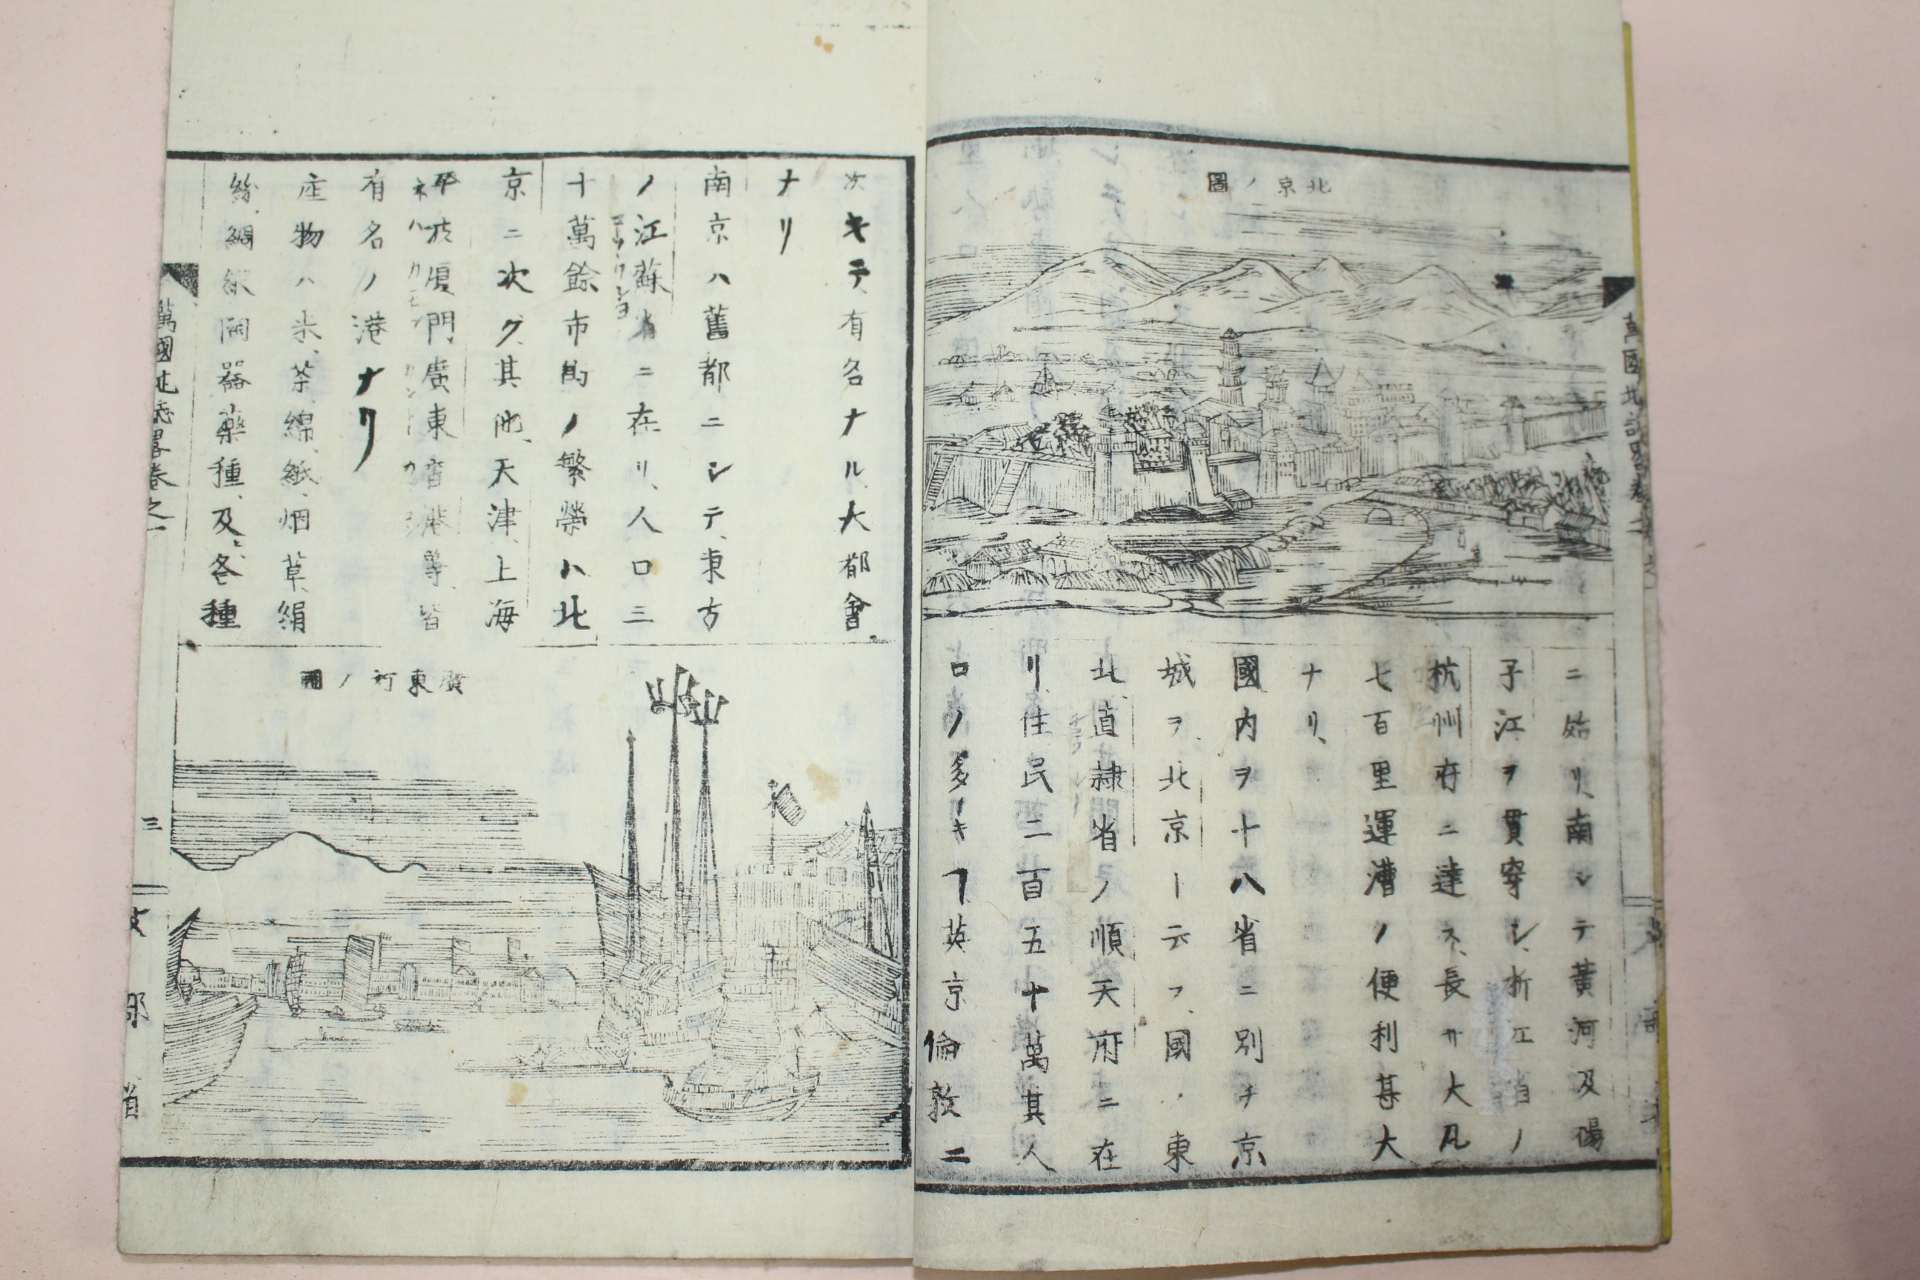 北京ノ圖
ニ始リ、南シテ黃河及揚
子江ヲ貫穿シ、折江省ノ
杭州府ニ達ス、長サ大凡
七百里運漕ノ便利甚大
ナリ、
國内ヲ十八省ニ別チ京
城ヲ北京ト云フ、國ノ東
北、直隷省ノ順天府ニ在
リ、住民二百五十萬其人
口ノ多キヿ、英京倫敦ニ
次キテ、有名ナル、大都會
ナリ
南京ハ舊都ニシテ、東方
ノ江蘇省ニ在リ、人口三
十萬餘市馬ノ繁榮ハ北
京ニ次グ、其他、天津、上海
厦門廣東香港等、皆
有名ノ港ナリ
産物ハ米、茶、綿、紙、烟草、絹
絲、綢緞陶器藥種、及各種
廣東河ノ圖
萬國地誌畧卷之一
三
文部省